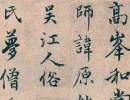 高峯和尚
師諱原妙
吴江人俗
民夢僧